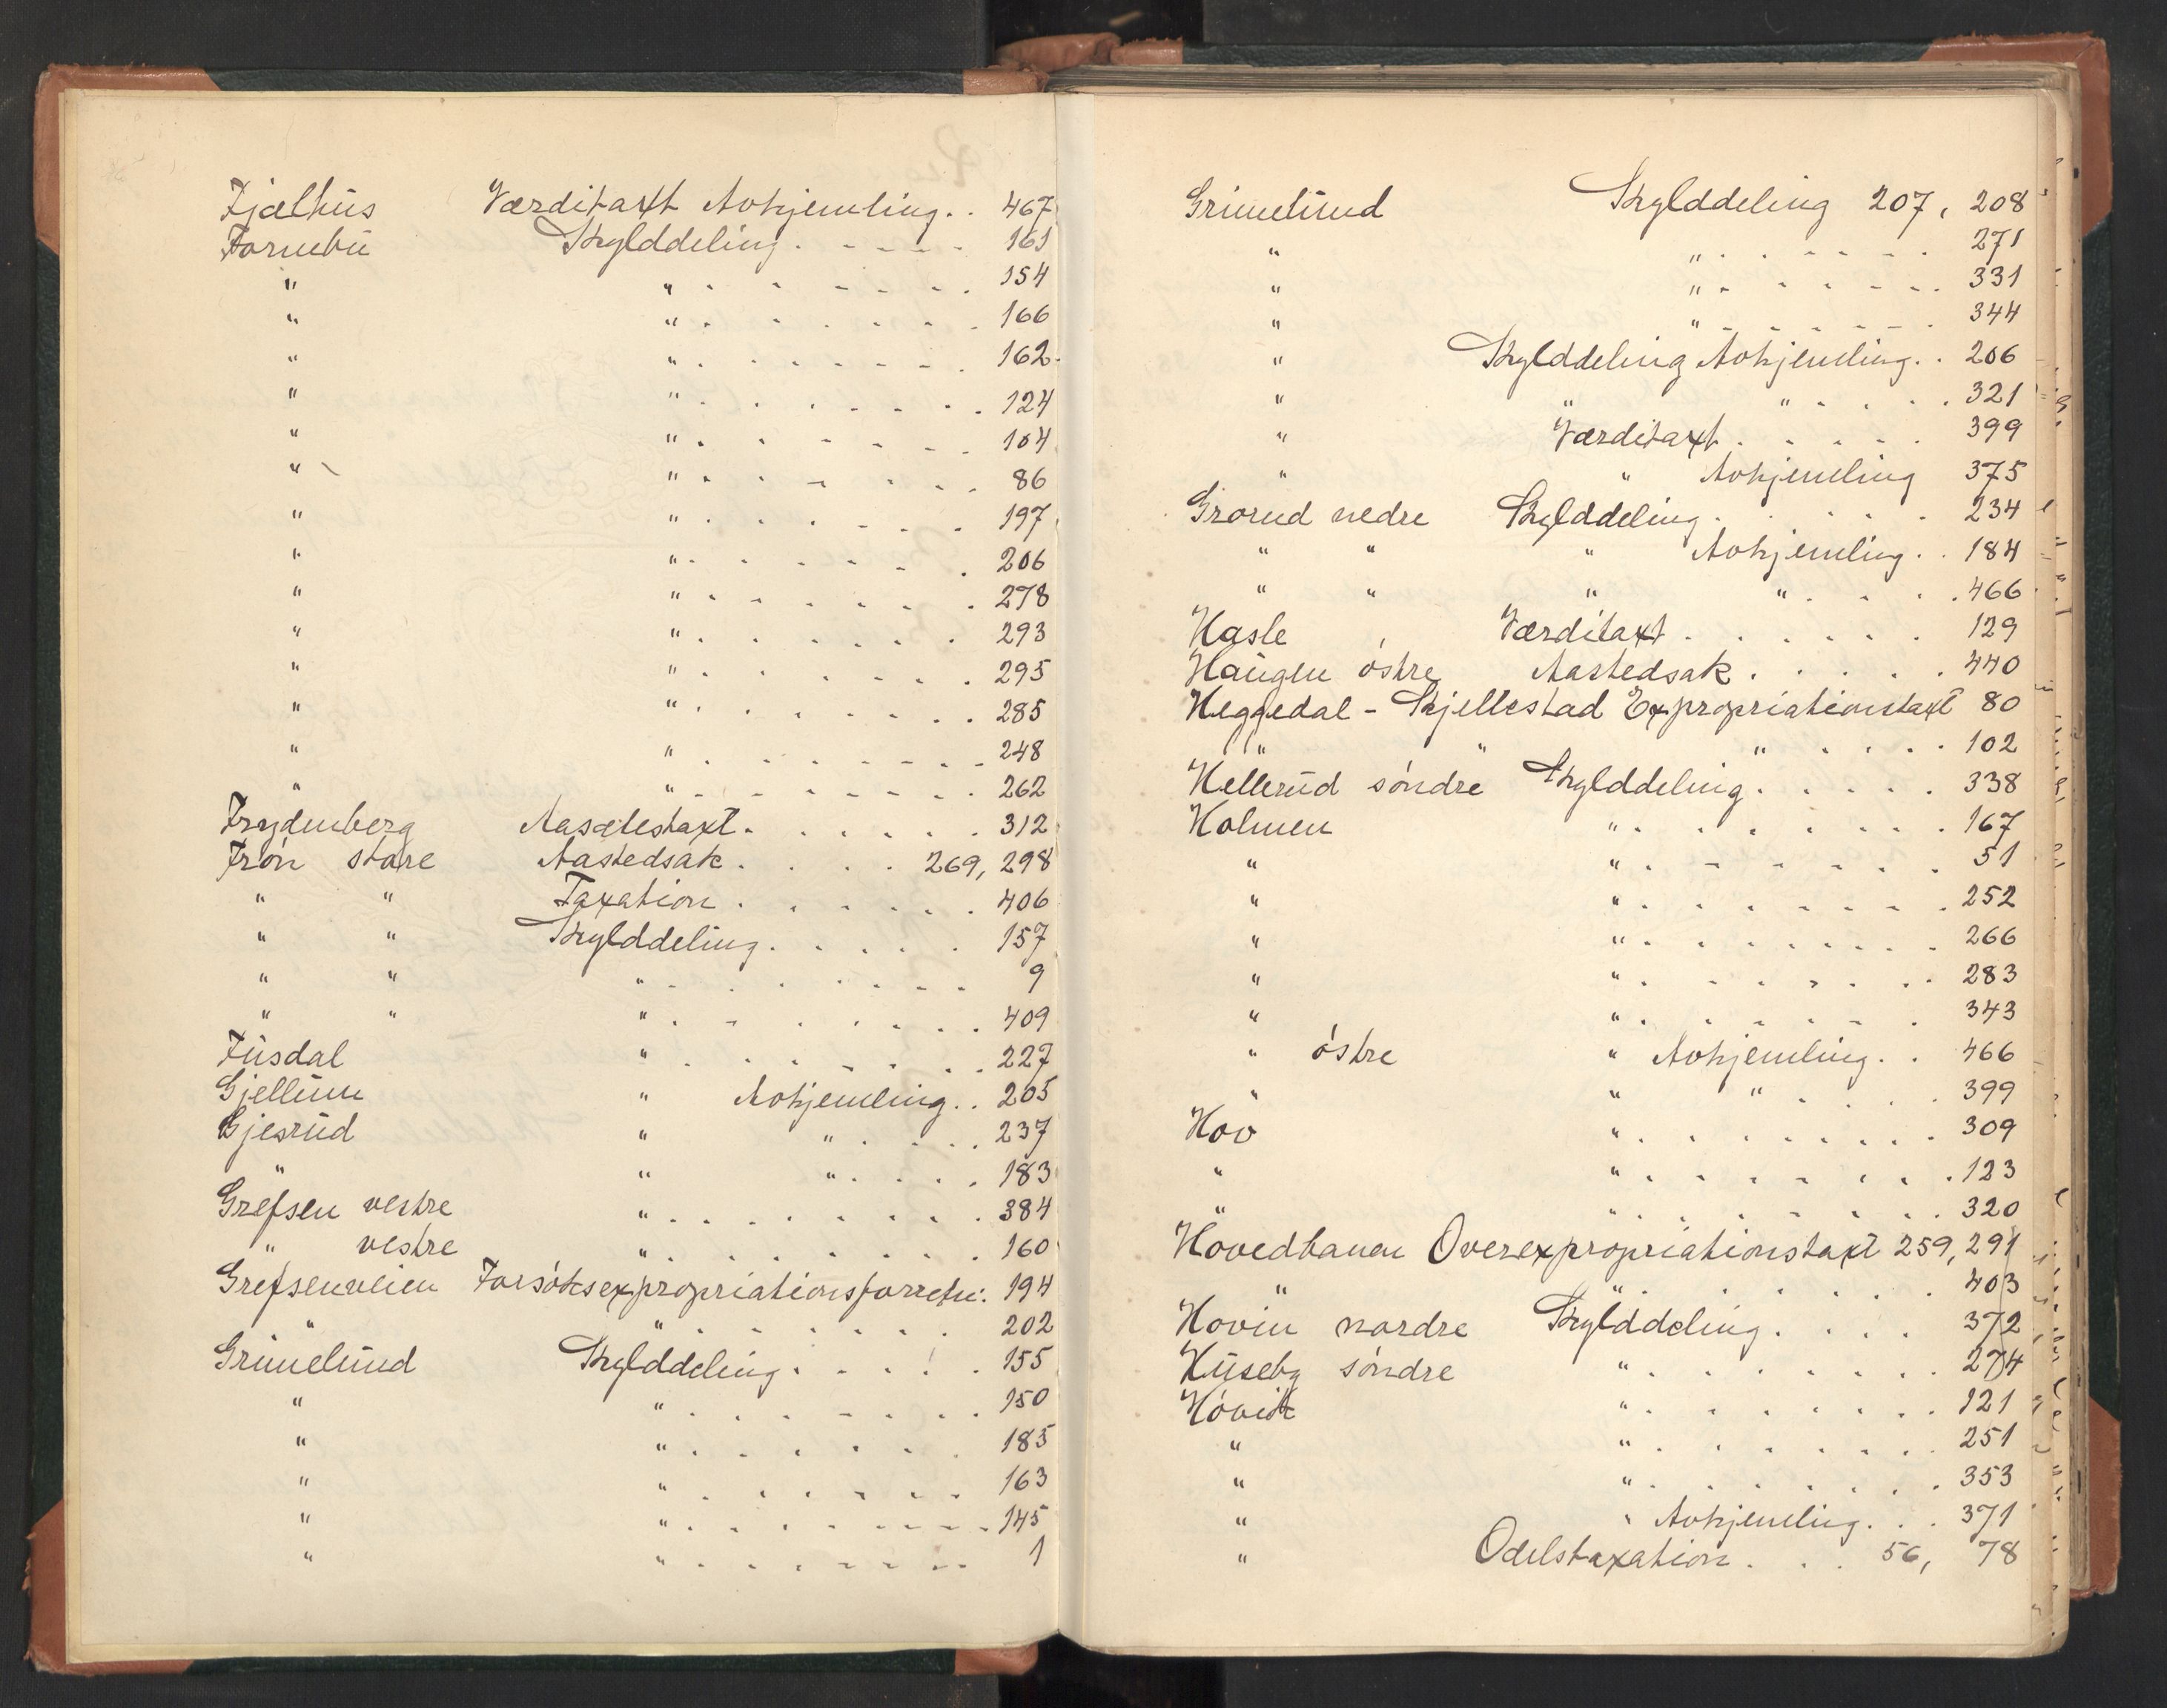 Fjælhus Værditaxt Avhjemling. . 467
Fornebu Skylddeling. - - - - 161
" " . . - - - . 154
" " . . . . . . 166
" " . . . . . . 162
" " . . . . . . 124
" " . . . . . . 104
" " . . . . . . 86
" " . . . . . . 197
" " . . . . . . 206
" " . . . . . . 278
" " . . . . . . 293
" " . . . . . . 295
" " . . . . . . 285
" " . . . . . . 248
" " . . . . . . 262
Frydenberg Aasætestaxt. . . . . . 312
Frøn store Aastedsak. . . . 269, 298
" " Taxation . . . . . . 406
" " Skylddeling. . . . . 157
" " " . . . . . . 9
" " " . . . . . . 409
Fusdal " . . . . . . 227
Gjellum " Avhjemling. . 205
Gjesrud " " . . . . 237
" " " . . . . 183
Grefsen vestre " . . . . . . 384
" vestre " . . . . . . 160
Grefsenveien Forsøksexpropriationsforretn: 194
" " . . . . . . 202
Grimelund Skylddeling. . . . . 155
" " . . . . . . 150
" " . . . . . . 185
" " . . . . . . 163
" " . . . . . . 145
" " . . . . . . 1
Grimelund Skylddeling 207, 208
" " . . . . . . 271
" " . . . . . . 331
" " . . . . . . 344
" Skylddeling Avhjemling. . 206
" " " . . . . 321
" Værditaxt . . . . . 399
" " Avhjemling 375
Grorud nedre Skylddeling . . . . . 234
" " " Avhjemling . . 184
" " " " . . . . 466
Hasle Værditaxt . . . . . . 129
Haugen østre Aastedsak . . . . . 440
Heggedal - Skjellestad Expropriationstaxt 80
" " " . . . . 102
Hellerud søndre Skylddeling. . . . . 338
Holmen " . . . . . . 167
" " . . . . . . 51
" " . . . . . . 252
" " . . . . . . 266
" " . . . . . . 283
" " . . . . . . 343
" østre " Avhjemling. . 466
" " " . . . . 399
Hov " . . . . . . 309
" " . . . . . . 123
" " . . . . . . 320
Hovedbanen Overexpropriationstaxt 259, 291
" " . . . . . . 403
Hovin nordre Skylddeling. . . . 372
Huseby søndre " . . . . . . 274
Høvik " . . . . . . 121
" " . . . . . . 251
" " . . . . . . 353
" " Avhjemling. . . 371
" Odelstaxation . . . 56, 78